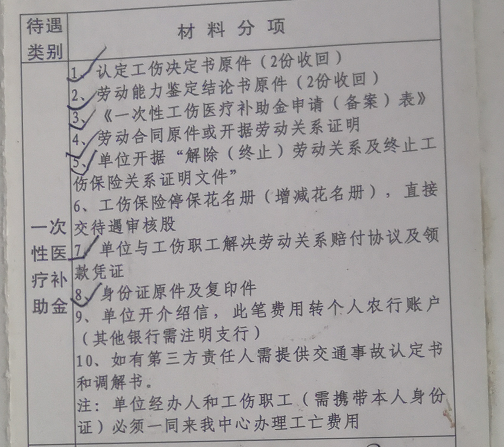 待遇
类别
材料分项
一次
性医
疗补
助金
1、认定工伤决定书原件（2份收回）
2、劳动能力鉴定结论书原件（2份收回）
3、《一次性工伤医疗补助金申请（备案）表》
4、劳动合同原件或开据劳动关系证明
5、单位开据“解除（终止）劳动关系及终止工
伤保险关系证明文件”
6、工伤保险停保花名册（增减花名册），直接
交待遇审核股
7、单位与工伤职工解决劳动关系赔付协议及领
款凭证
8、身份证原件及复印件
9、单位开介绍信，此笔费用转个人农行账户
（其他银行需注明支行）
10、如有第三方责任人需提供交通事故认定书
和调解书。
注：单位经办人和工伤职工（需携带本人身份
证）必须一同来我中心办理工亡费用